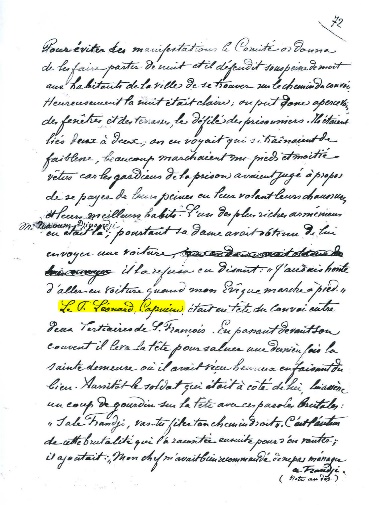 72
Pour éviter des manifestations le Comité ordonna
de les faire partir de nuit et il défendit sous peine de mort
aux habitants de la ville de se trouver sur le chemin du convoi.
Heureusement la nuit était claire; on put donc apercevoir
des fenêtres et des terrasses, le défilé des prisonniers. Ils étaient
liés deux à deux, on en voyait qui se traînaient de
faiblesse, beaucoup marchaient nu-pieds et moitié
vêtus car les gardiens de la prison avaient jugé à propos
de se payer de leurs peines en leur volant leurs chaussures
et leurs meilleurs habits. L'un des plus riches arméniens
Mr
en était là; pourtant sa dame avait obtenu de lui
envoyer une voiture,
il la refusa en disant: "J'aurais honte
d'aller en voiture quand mon évêque marche à pied."
Le P. Léonard, Capucin, était en tête du convoi entre
deux Tertiaires de St François. En passant devant son
couvent il leva la tête pour saluer une dernière fois la
sainte demeure où il avait vécu heureux en faisant du
bien. Aussitôt le soldat qui était à côté de lui, lui asséna
un coup de gourdin sur la tête avec ces paroles brutales:
"Sale Frandji, vas-tu filer ton chemin droit". C'est l'auteur
de cette brutalité qui l'a racontée ensuite pour s'en vanter;
il ajoutait: "Mon chef m'avait bien recommandé de ne pas ménager
ce Frandji.